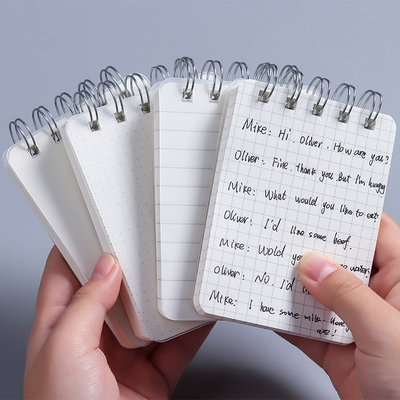 Mike: Hi, Oliver. How are you?
Oliver: Fine. thank you. But I'm hungry
Mike: What would you like to eat
Oliver: I'd like some beef.
Mike: Wold you
Oliver: No. I'd
Mike: I have some milk. Honey